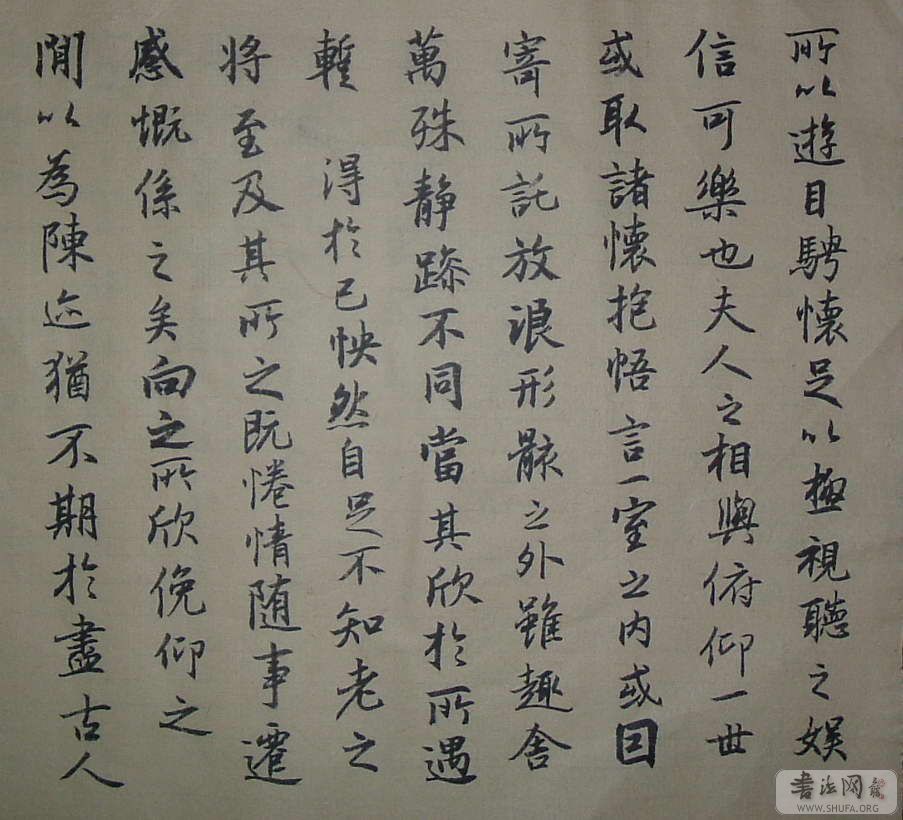 所以遊目騁懷足以極視聽之娛
信可樂也夫人之相與俯仰一世
或取諸懷抱悟言一室之内或因
寄所託放浪形骸之外雖趣舍
萬殊静躁不同當其欣於所遇
暫得於己怏然自足不知老之
將至及其所之既惓情随事遷
感慨係之矣向之所欣俛仰之
閒以為陳迹猶不期於盡古人
書法网
WWW.SHUFA.ORG